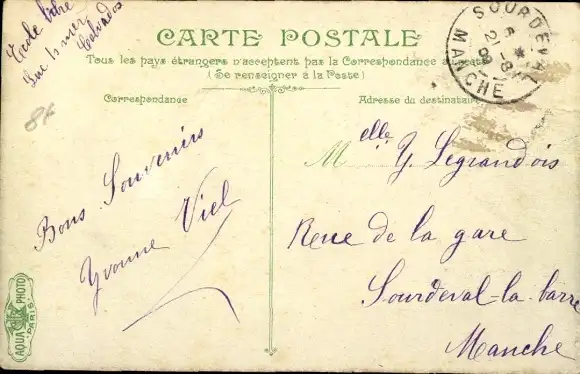 Ecole libre
Luc s mer
Calvados
CARTE POSTALE
Tous les pays étrangers n'acceptent pas la Correspondance au recto
(Se renseigner à la Poste)
SOURDEVAL
21 - 8
MANCHE
Correspondance
Adresse du destinataire
84
Bons Souvenirs
Yvonne Viel
Melle Y. Legrandois
Rue de la gare
Sourdeval-la-barre
Manche
AQUA PHOTO
PARIS